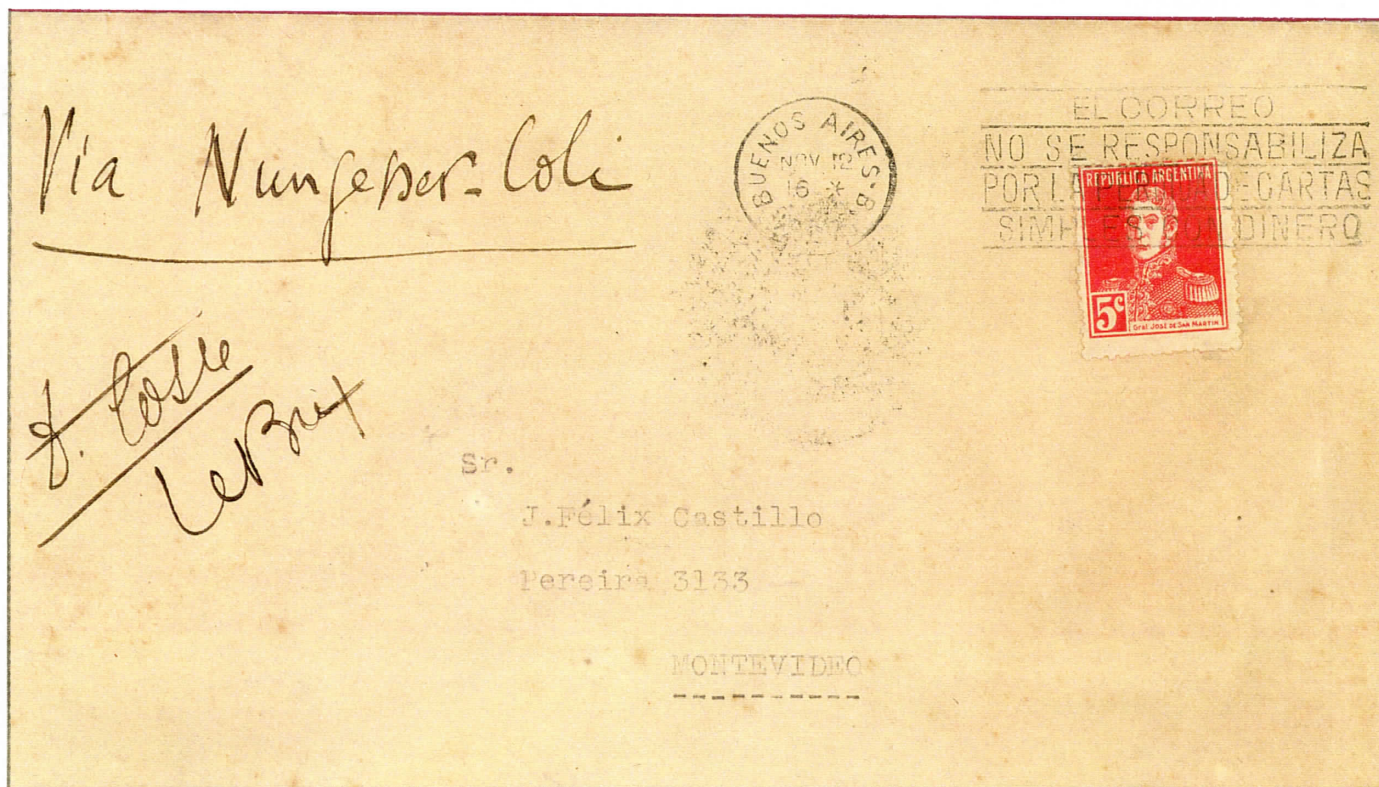 Vía Nungesser-Coli
BUENOS AIRES-B
NOV 12
16 *
EL CORREO
NO SE RESPONSABILIZA
POR LA DE CARTAS
SIMPLES DINERO
REPUBLICA ARGENTINA
5c
Gral José de San Martín
D. Coste
Le Brix
Sr.
J.Félix Castillo
Pereira 3133 —
MONTEVIDEO